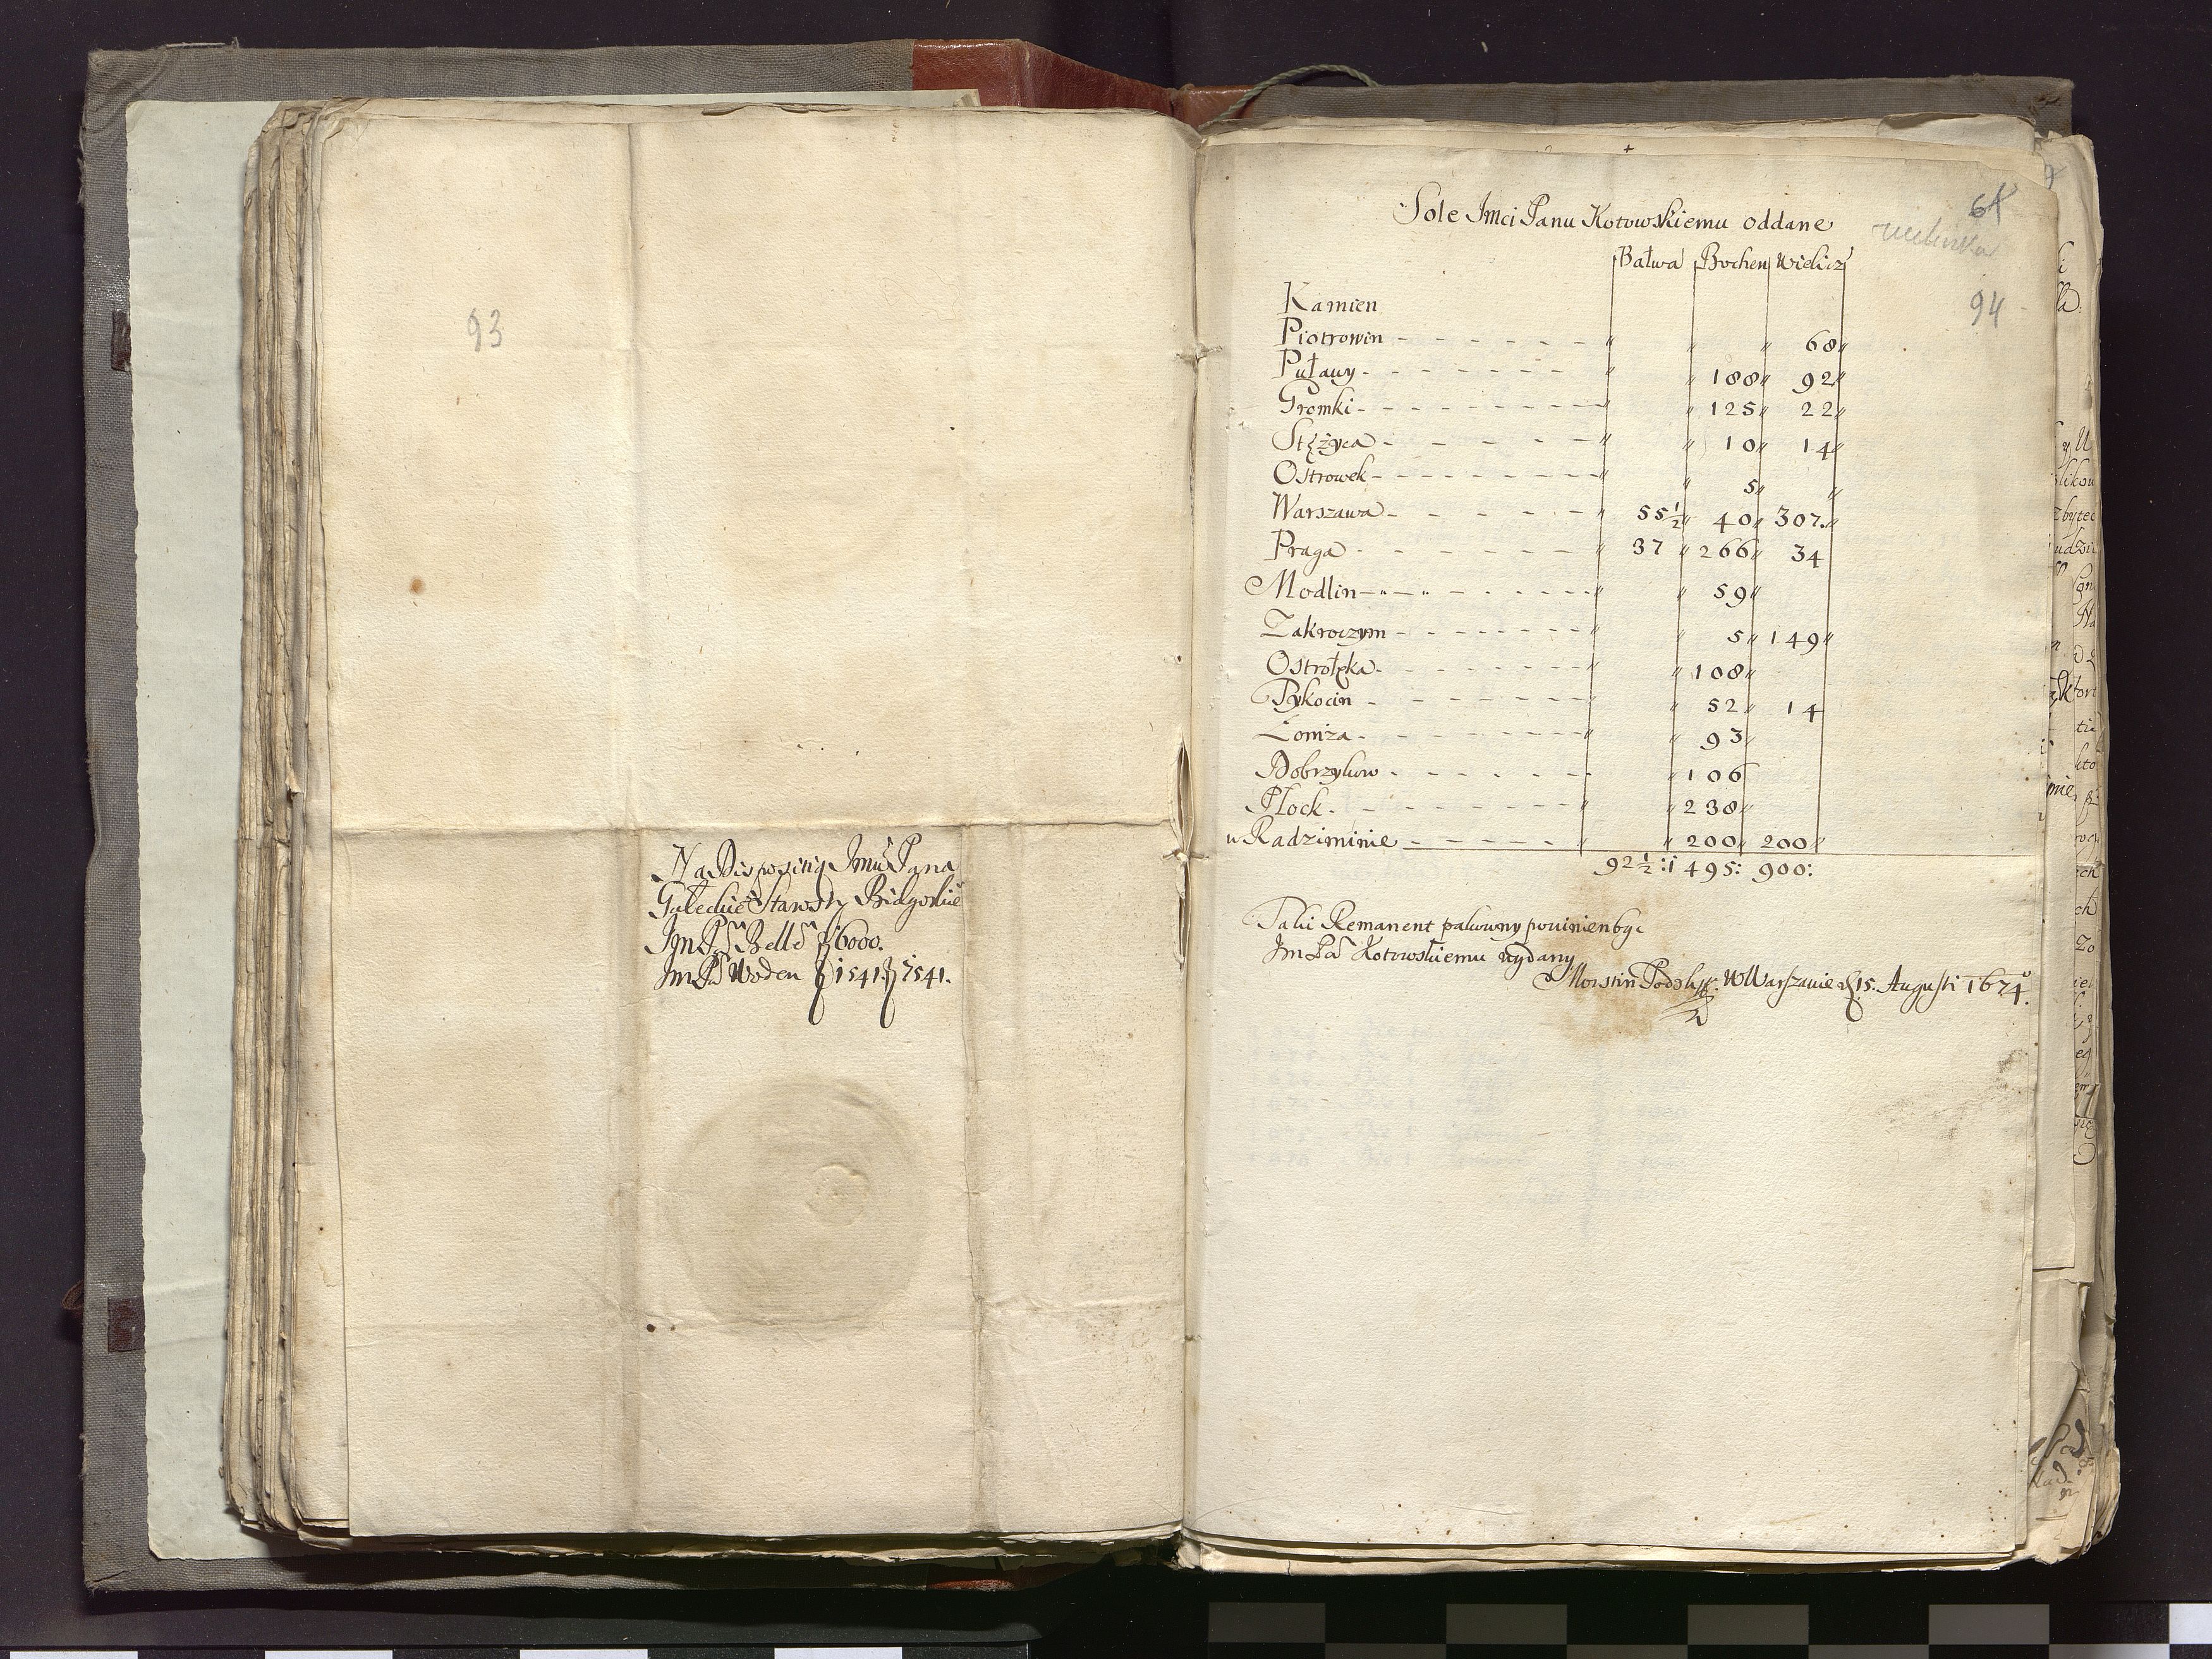 93
Na Dispositią Jmći Pana
Gałeckiē Starosty Bidgoskiē
JmP Belle f 6000.
JmP Woden f 1541. f 7541.
64
94
Sole Jmci Panu Kotowskiemu oddane
Bałwa Bochen Wielicz
Kamien
Piotrowin - - - - - - - " " " 68"
Puławy - - - - - - - " " 188" 92"
Gromki - - - - - - - " " 125" 22"
Stężyca - - - - - " " 10" 14"
Ostrowek - - - - - - - " " 5" "
Warszawa - - - - - " 55½" 40" 307."
Praga - - - - - - " 37 " 266" 34
Modlin - - - - - - " " 59"
Zakroczym - - - - - - " " 5" 149"
Ostrołęka - - - - - - - " " 108"
Tykocin - - - - - - - " " 52" 14
Łomża - - - - - - - " " 93"
Dobrzykow - - - - - - " 106
Płock - - - - - - - " " 238"
w Radziminie - - - - - " " 200" 200"
92½: 1495: 900:
Taki Remanent pakowny powinien byc
Jm Pā Kotowskiemu wydany
Morstin Podsk. W Warszawie d 15. Augusti 1674.